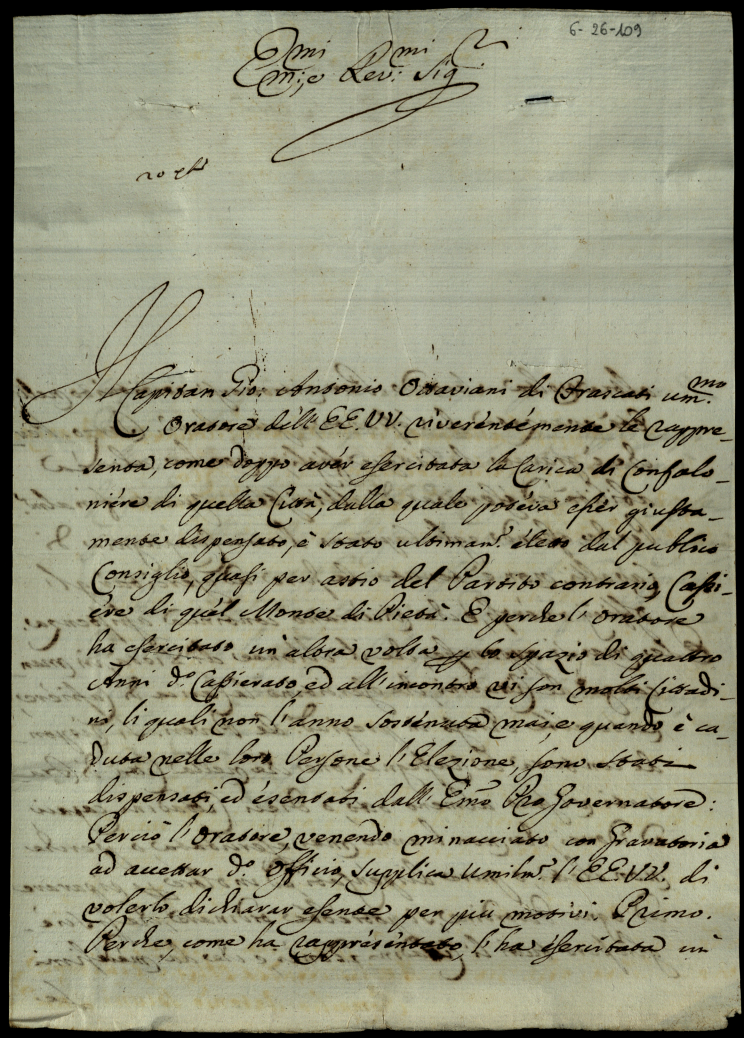 6-26-109
Em.mi, e Rev.mi Sig.ri
Il Capitan Gio: Antonio Ottaviani di Frascati um.mo
Oratore dell'EE.VV. riverentemente le rappre-
senta, come doppo aver esercitata la Carica di Confalo-
niere di quella Città, dalla quale poteva esser giusta-
mente dispensato, è stato ultimam.e eletto dal publico
Consiglio, quasi per astio del Partito contrario, Cassi-
ere di quel Monte di Pietà. E perche l'Oratore
ha esercitato un'altra volta p lo spazio di quattro
Anni d.o Cassierato, ed all'incontro vi son molti Cittadi-
ni, li quali non l'anno sostenuta mai, e quando è ca-
duta nelle loro Persone l'Elezione, sono stati
dispensati, ed esentati dall'Em.o Pro Governatore:
Perciò l'Oratore, venendo minacciato con Gravatoria
ad accettar d.o Officio, supplica umilm.e l'EE.VV. di
volerlo dichiarar esente per più motivi. Primo.
Perche, come ha rappresentato, l'ha esercitata un